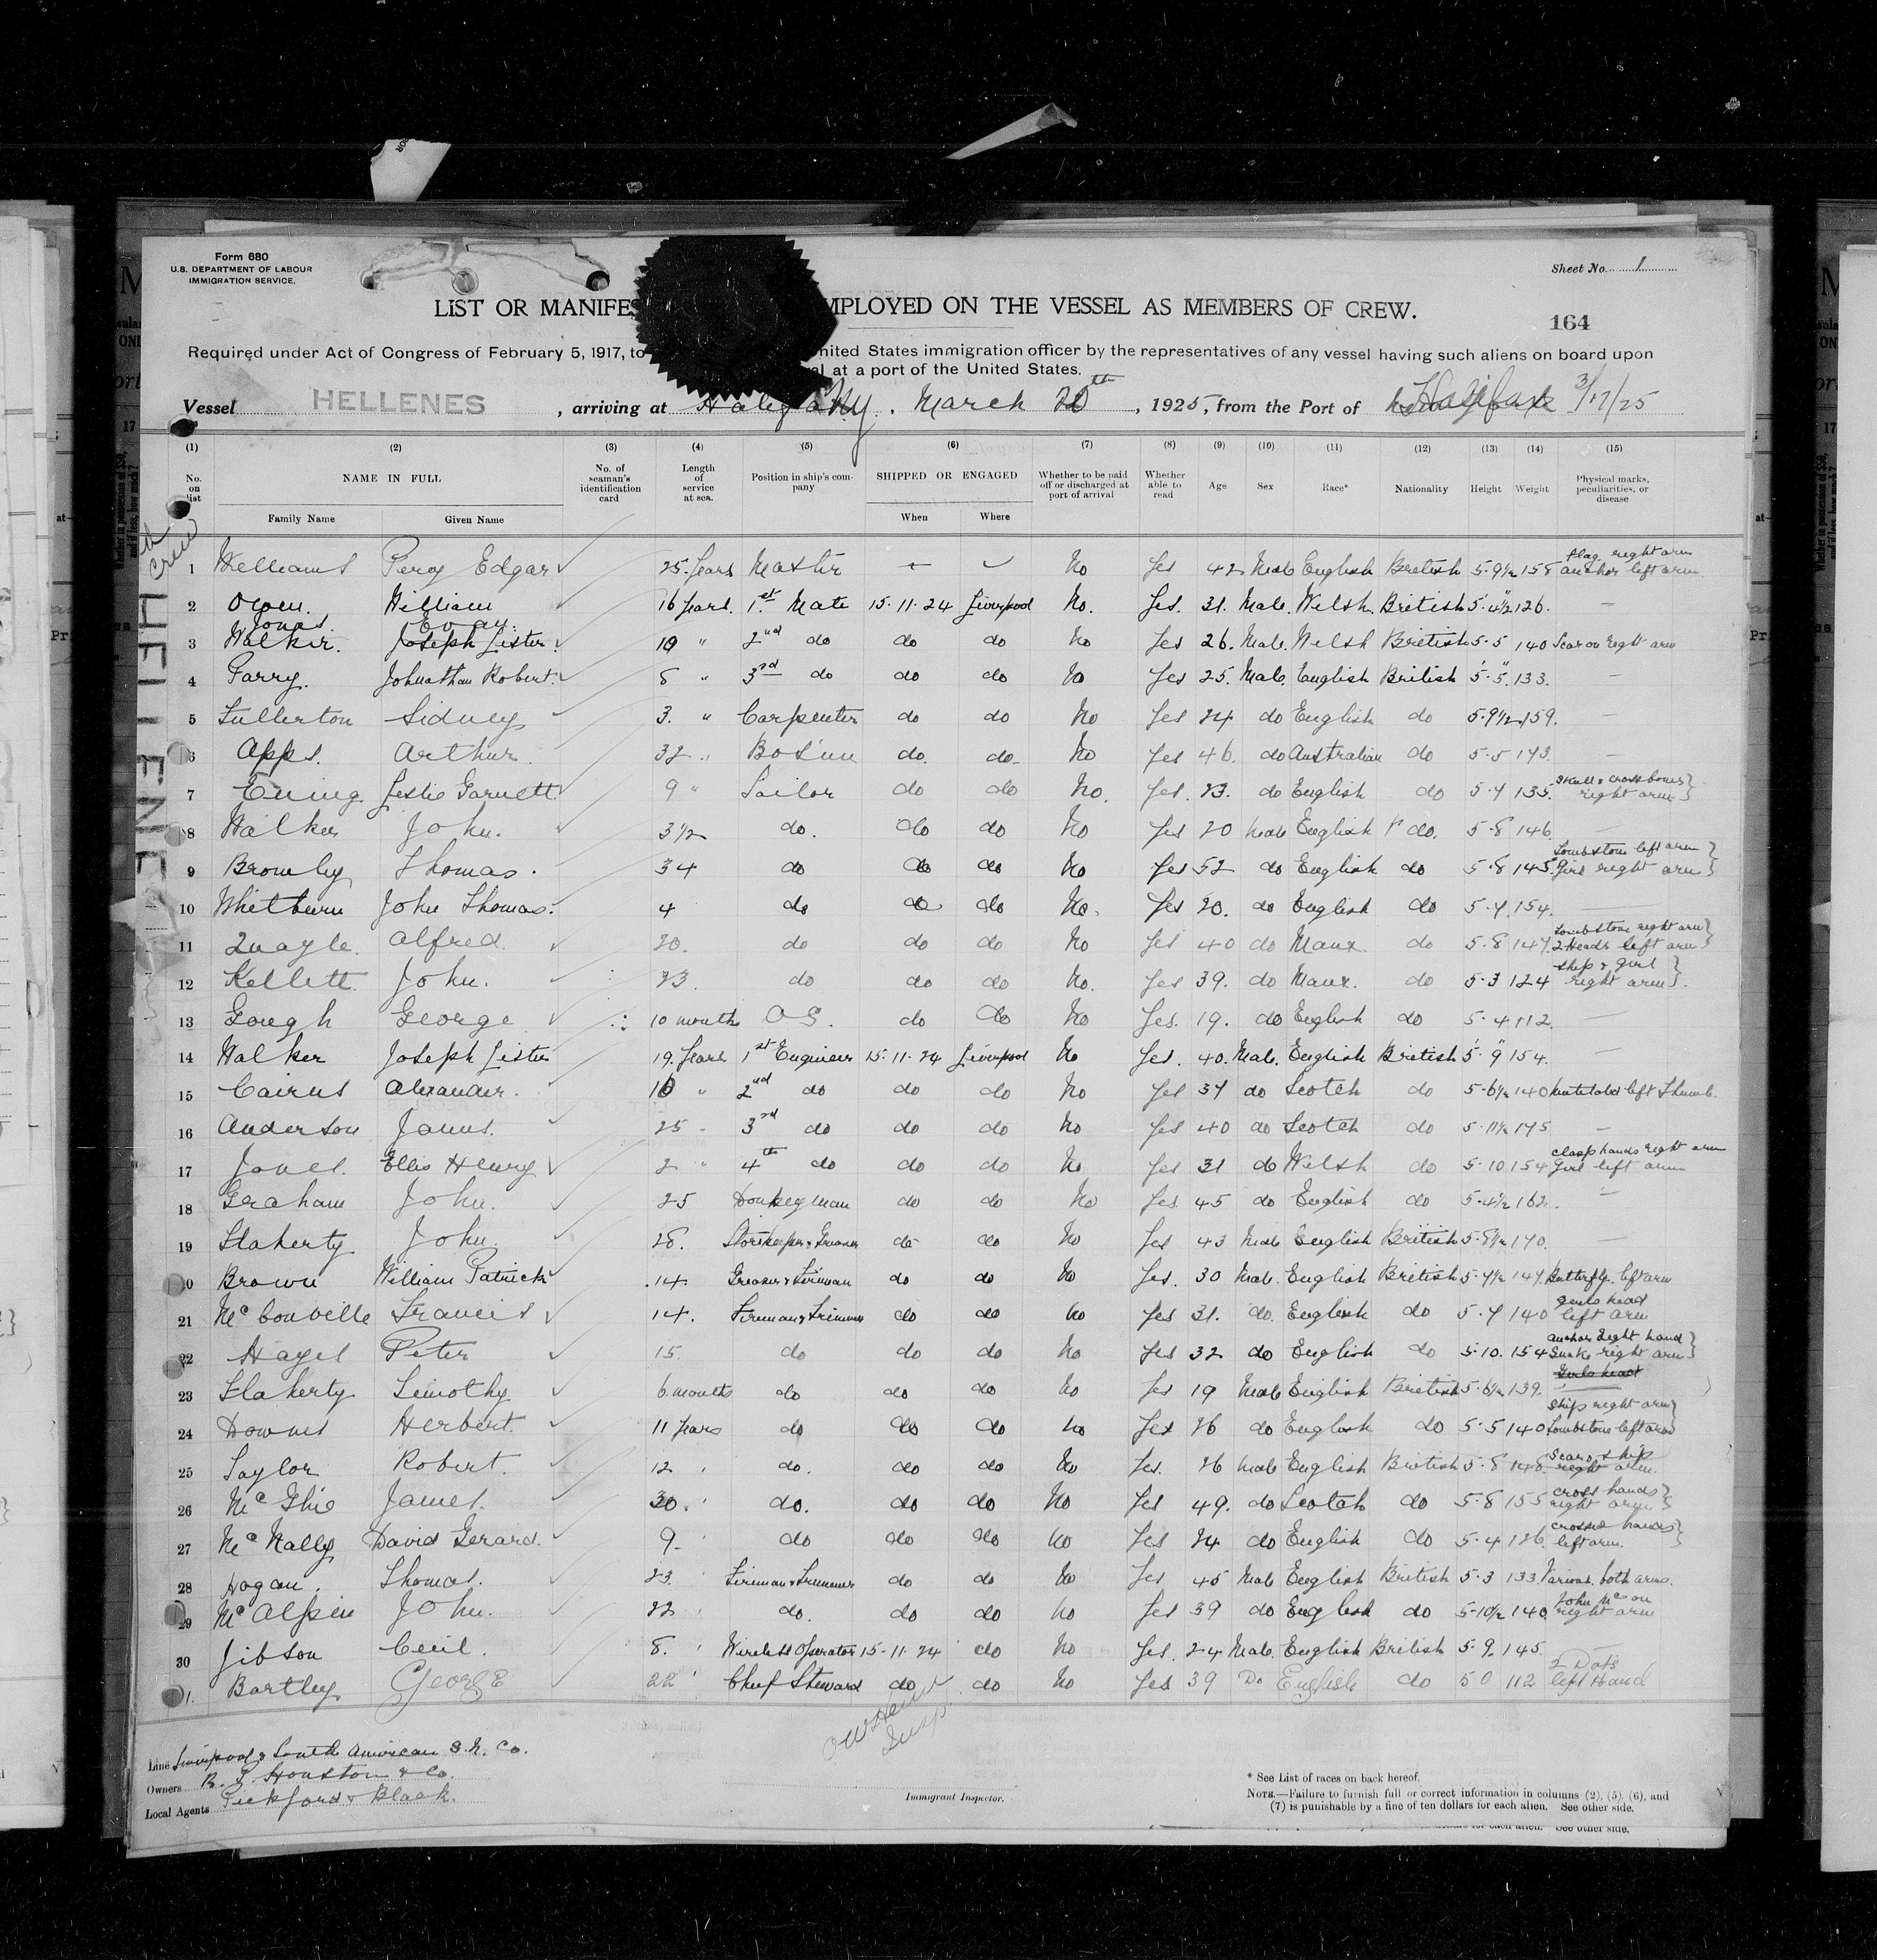 Form 680
U.S. DEPARTMENT OF LABOUR
IMMIGRATION SERVICE.
Sheet No. 1
LIST OR MANIFES MPLOYED ON THE VESSEL AS MEMBERS OF CREW.
164
Required under Act of Congress of February 5, 1917, to nited States immigration officer by the representatives of any vessel having such aliens on board upon
al at a port of the United States.
Vessel HELLENES, arriving at NY, March 20th, 1925, from the Port of Halifax 3/17/25
(1) (2) (3) (4) (5) (6) (7) (8) (9) (10) (11) (12) (13) (14) (15)
No. on list NAME IN FULL No. of seaman's identification card Length of service at sea. Position in ship's company SHIPPED OR ENGAGED Whether to be paid off or discharged at port of arrival Whether able to read Age Sex Race* Nationality Height Weight Physical marks, peculiarities, or disease
Family Name Given Name When Where
Crew
HELLENES
1 Williams Percy Edgar 25 Years Master — No Yes 42 Male English British 5-9½ 158 flag right arm anchor left arm
2 Owen William 16 Years 1st Mate 15-11-24 Liverpool No. Yes. 31. Male. Welsh British 5'4½" 126. —
3 Jones Evan Walker Joseph Lister 10 " 2nd do do do No Yes 26. Male. Welsh British 5-5 140 Scar on right arm
4 Parry. Johnathan Robert. 8 " 3rd do do do No Yes 25. Male. English British 5'-5" 133. —
5 Fullerton Sidney 3. " Carpenter do do No Yes 24 do English do 5-9½ 159. —
6 Apps. Arthur 32 " Bos'un do. do. No Yes 46. do Australian do 5-5 173. —
7 Ewing Leslie Garnett 9 " Sailor do do No. Yes. 23. do English do 5-7 135. Skull & crossbones right arm
8 Walker John. 3½ do. do do No Yes 20 Male English do. 5-8 146 —
9 Bromley Thomas. 34 do do do No Yes 52 do English do 5-8 145 Tombstone left arm Girl right arm
10 Whitburn John Thomas. 4 do do do No. Yes 20. do English do 5-7 154. —
11 Quayle Alfred. 20. do do do No Yes 40 do Manx do 5-8 147. Tombstone right arm 2 Heads left arm
12 Kellett John. 23. do do do No. Yes 39. do Manx. do 5-3 124 Ship & girl right arm
13 Gough George 10 months O S. do do No Yes. 19. do English do 5-4 112. —
14 Walker Joseph Lister 19. Years 1st Engineer 15-11-24 Liverpool No Yes. 40. Male. English British 5'-9" 154. —
15 Cairns Alexander. 10 " 2nd do do do No Yes 37 do Scotch do 5-6½ 140 Mutilated left Thumb.
16 Anderson James. 25 " 3rd do do do No Yes 40 do Scotch do 5-11½ 175 —
17 Jones. Ellis Henry 2 " 4th do do do No Yes 31 do Welsh do 5-10 154 clasp hands right arm Girl left arm
18 Graham John. 25 Donkeyman do do No Yes 45 do English do 5-4½ 162. —
19 Flaherty John. 28. Storekeeper & Greaser do do No Yes 43 Male English British 5-8½ 170. —
20 Brown William Patrick 14 Greaser & Fireman do do No Yes. 30 Male. English British 5-7½ 147. Butterfly left arm
21 McConville Francis 14. Fireman & Trimmer do do No Yes 31. do. English do 5-7 140 Girls head left arm
22 Hayes Peter 15. do do do No Yes 32 do English do 5-10. 154 anchor right hand Snake right arm
23 Flaherty Timothy 6 months do do do No Yes 19 Male English British 5-6½ 139. Girls head
24 Downes Herbert. 11 Years do do do No Yes 26 do English do 5-5 140 Ship right arm Tombstone left arm
25 Taylor Robert. 12 " do. do do No Yes. 26 Male English British 5-8 148. Scar & ship right arm.
26 McGhie James. 30. " do. do do No Yes 49. do Scotch do 5-8 155 cross hands right arm
27 McNally David Gerard. 9. do do do No Yes 24 do English do 5-4 126. crossed hands left arm.
28 Hogan. Thomas. 23. Fireman & Trimmer do do No Yes 45 Male English British 5-3 133. Various both arms.
29 McAlpin John. 22 do. do do No Yes 39 do English do 5-10½ 140. John Mc on right arm
30 Jibson Cecil. 8. Wireless Operator 15-11-24 do No Yes. 24 Male. English British 5-9. 145. —
1. Bartley George 22 Chief Steward do do No Yes 39 Do English do 5 0 112 2 Dots left Hand
Line Liverpool & South American S.N. Co.
Owners R. P. Houston & Co.
Local Agents Pickford & Black.
Insp
Immigrant Inspector.
* See List of races on back hereof.
NOTE.—Failure to furnish full or correct information in columns (2), (5), (6), and
(7) is punishable by a fine of ten dollars for each alien. See other side.